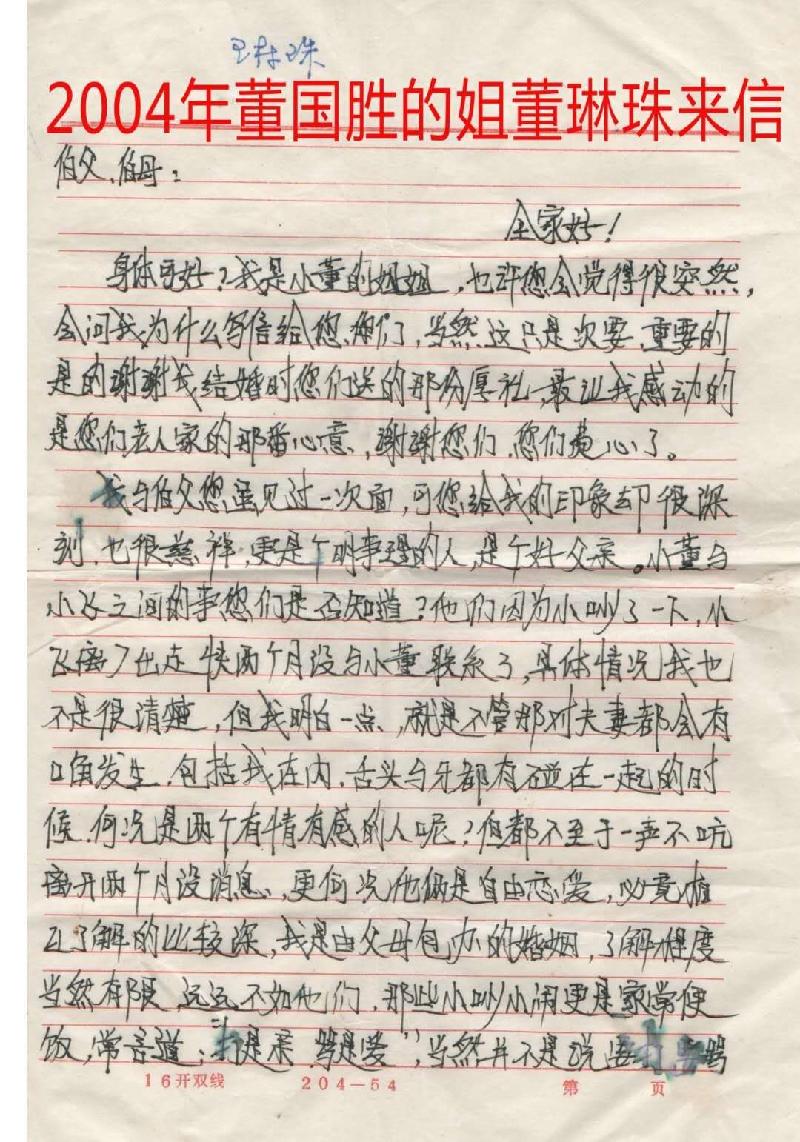 2004年董国胜的姐董琳珠来信
伯父、伯母：
全家好！
身体可好？我是小董的姐姐，也许您会觉得很突然，
会问我为什么写信给您、您们，当然这只是次要，重要的
是的谢谢我结婚时您们送的那份厚礼，最让我感动的
是您们老人家的那番心意，谢谢您们，您们费心了。
我与伯父您虽见过一次面，可您给我的印象却很深
刻，也很慈祥，更是个明事理的人，是个好父亲。小董与
小飞之间的事您们是否知道？他们因为小吵了一下，小
飞离了出走快两个月没与小董联系了，具体情况我也
不是很清楚，但我明白一点，就是不管那对夫妻都会有
口角发生，包括我在内，舌头与牙都有碰在一起的时
候，何况是两个有情有感的人呢？但都不至于一声不吭
离开两个月没消息，更何况他俩是自由恋爱，必竟相
互了解的比较深，我是由父母包办的婚姻，了解程度
当然有限，远远不如他们，那些小吵小闹更是家常便
饭，常言道：“打是亲，骂是爱”，当然并不是说 骂
16开双线 204—54 第 页